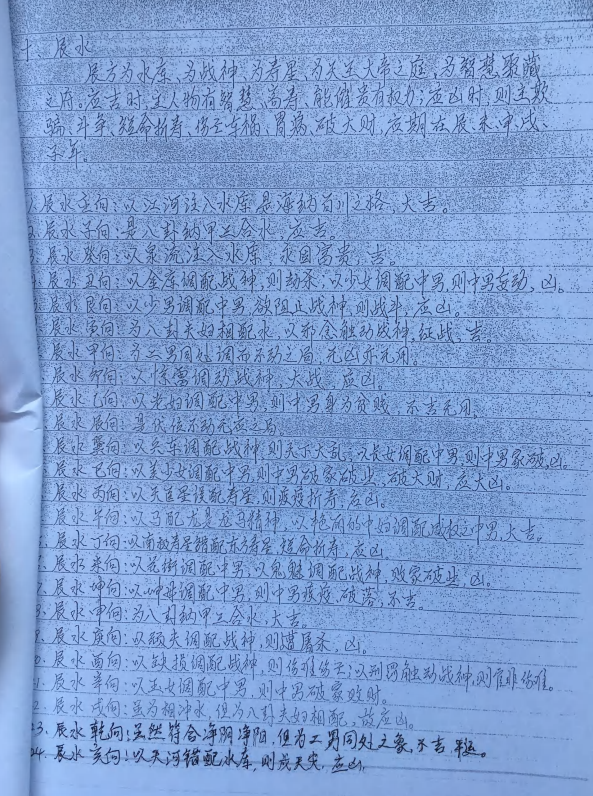 十、辰水
辰方为水库、为战神、为寿星、为天圣大帝之庭、为智慧聚藏
之府。应吉时,主人物有智慧、高寿、能催贵有权力;应凶时,则主欺
骗、斗争、短命折寿、伤亡车祸、胃病、破大财,应期在辰、未、申、戌、
子年。
辰水壬向:以江河注入水库是海纳百川之格,大吉。
辰水子向:是八卦纳甲三合水,应吉。
辰水癸向:以泉流注入水库,永固富贵,吉。
辰水丑向:以金库调配战神,则劫杀;以少女调配中男,则中男妄动,凶。
辰水艮向:以少男调配中男,欲阻止战神,则战斗,应凶。
辰水寅向:为八卦夫妇相配水,以邪念触动战神,征战,吉。
辰水甲向:为二男同处调而不动之局,无凶亦无用。
辰水卯向:以惊雷调动战神,大战,应凶。
辰水乙向:以老妇调配中男,则中男身为贫贱,不吉无用。
辰水辰向:是伏位不动无应之局
辰水巽向:以兵车调配战神,则天下大乱,以长女调配中男,则中男家破,凶。
辰水巳向:以美少女调配中男,则中男破家破业,破大财,应大凶。
辰水丙向:以天医星误配寿星,则疫疫折寿,应凶。
辰水午向:以马配龙是龙马精神,以艳丽的中妇调配威权之中男,大吉。
辰水丁向:以南极寿星错配东方寿星,短命折寿,应凶
辰水未向:以花街调配中男;以鬼魅调配战神,败家破业,凶。
7、辰水坤向:以调配中男,则中男疫疫,破落,不吉。
8、辰水申向:为八卦纳甲三合水,大吉。
9、辰水庚向:以预夫调配战神,则遭屠杀,凶。
0、辰水酉向:以缺损调配战神,则伤难伤亡;以刑罚触动战神,则官非伤难。
1、辰水辛向:以玉女调配中男,则中男破家败财。
2、辰水戌向:虽为相冲水,但为八卦夫妇相配,故应凶。
23、辰水乾向:虽然符合净阴净阳,但为二男同处之象,不吉,平运。
24、辰水亥向:以天河错配水库,则成天灾,应凶。